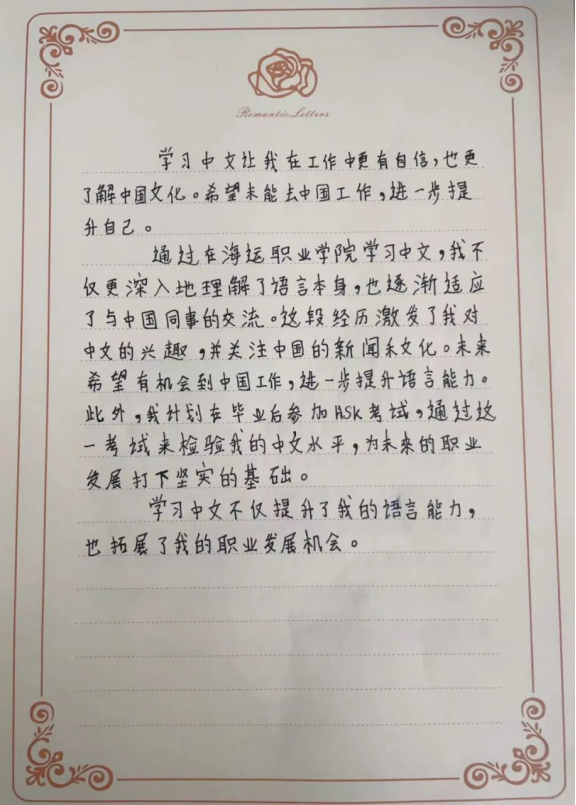 Romantic Letters
学习中文让我在工作中更有自信，也更
了解中国文化。希望未能去中国工作，进一步提
升自己。
通过在海运职业学院学习中文，我不
仅更深入地理解了语言本身，也逐渐适应
了与中国同事的交流。这段经历激发了我对
中文的兴趣，并关注中国的新闻未文化。未来
希望有机会到中国工作，进一步提升语言能力。
此外，我计划在毕业后参加HSK考试，通过这
一考试来检验我的中文水平，为未来的职业
发展打下坚实的基础。
学习中文不仅提升了我的语言能力，
也拓展了我的职业发展机会。